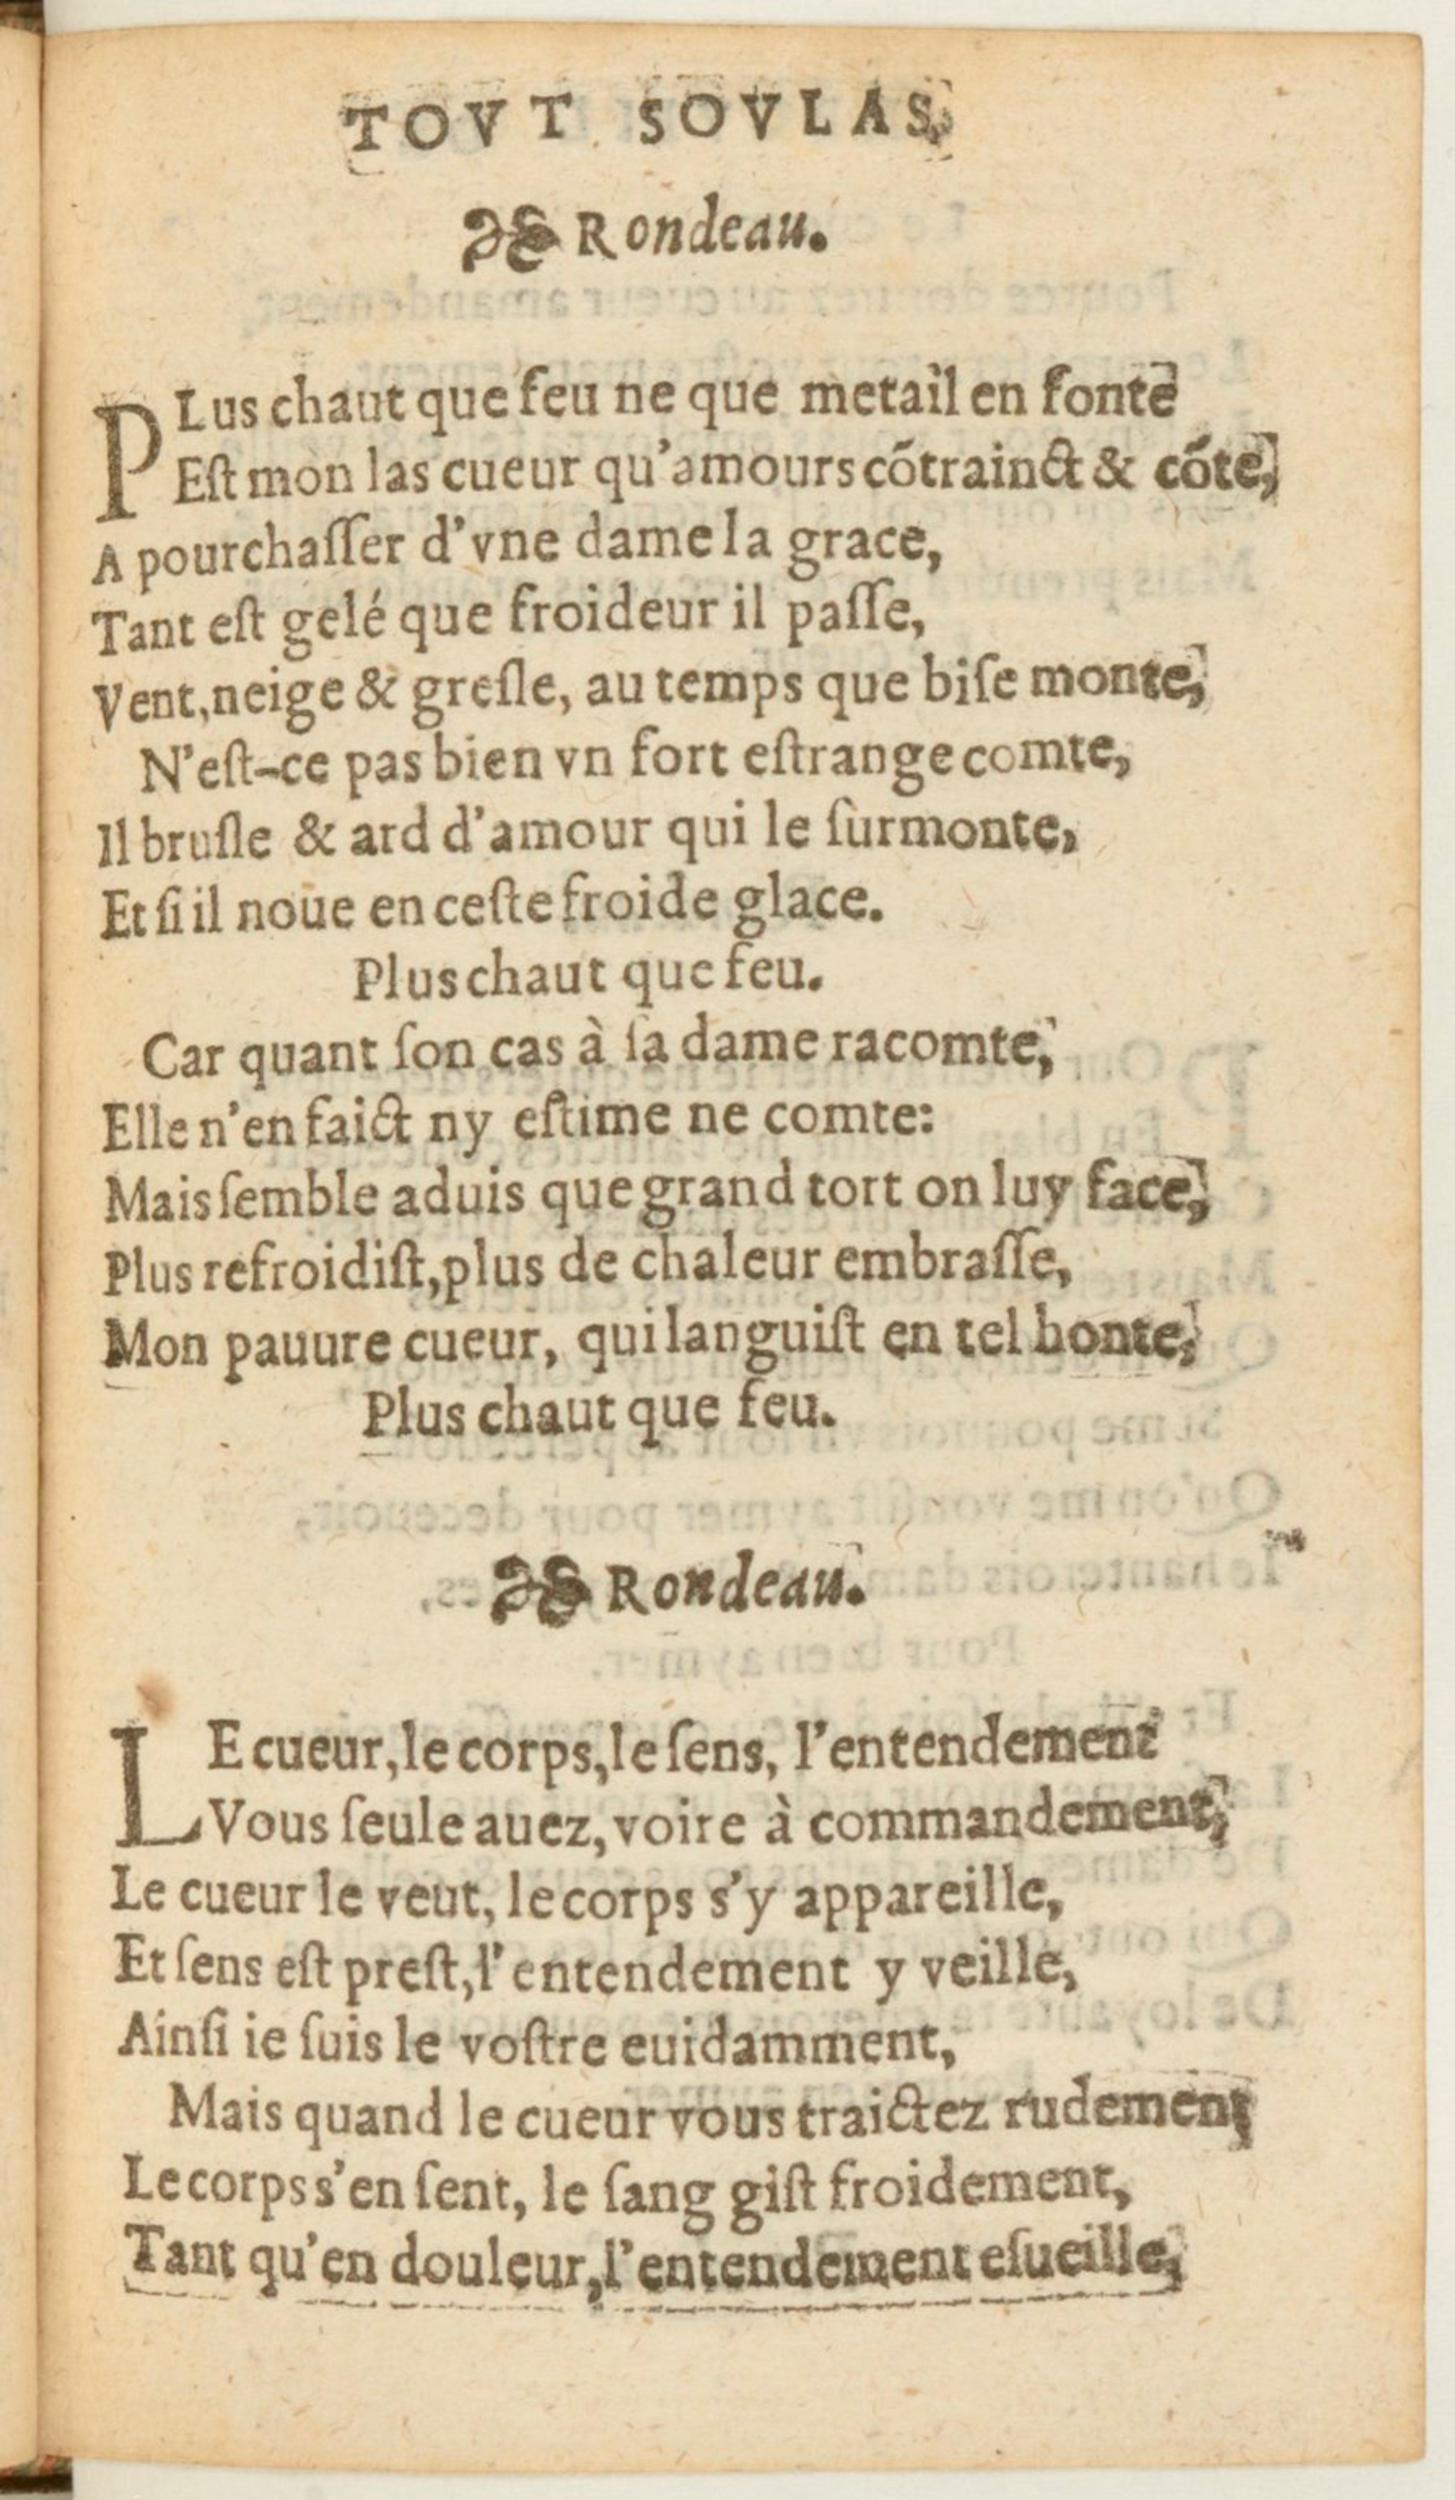 TOVT SOVLAS.
Rondeau.
PLus chaut que feu ne que metail en fonte
Eſt mon las cueur qu'amours cõtrainct & cõte,
A pourchaſſer d'vne dame la grace,
Tant eſt gelé que froideur il paſſe,
Vent, neige & greſle, au temps que biſe monte,
N'eſt-ce pas bien vn fort eſtrange comte,
Il bruſle & ard d'amour qui le ſurmonte,
Et ſi il noue en ceſte froide glace.
Plus chaut que feu.
Car quant ſon cas à ſa dame racomte,
Elle n'en faict ny eſtime ne comte:
Mais ſemble aduis que grand tort on luy face,
Plus refroidiſt, plus de chaleur embraſſe,
Mon pauure cueur, qui languiſt en tel honte,
Plus chaut que feu.
Rondeau.
LE cueur, le corps, le ſens, l'entendement
Vous ſeule auez, voire à commandement,
Le cueur le veut, le corps s'y appareille,
Et ſens eſt preſt, l'entendement y veille,
Ainſi ie ſuis le voſtre euidamment,
Mais quand le cueur vous traictez rudement
Le corps s'en ſent, le ſang giſt froidement,
Tant qu'en douleur, l'entendement eſueille,